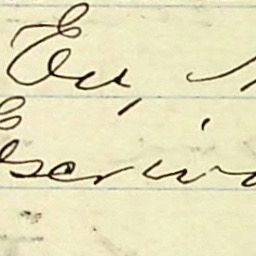 Eu,
Escriva